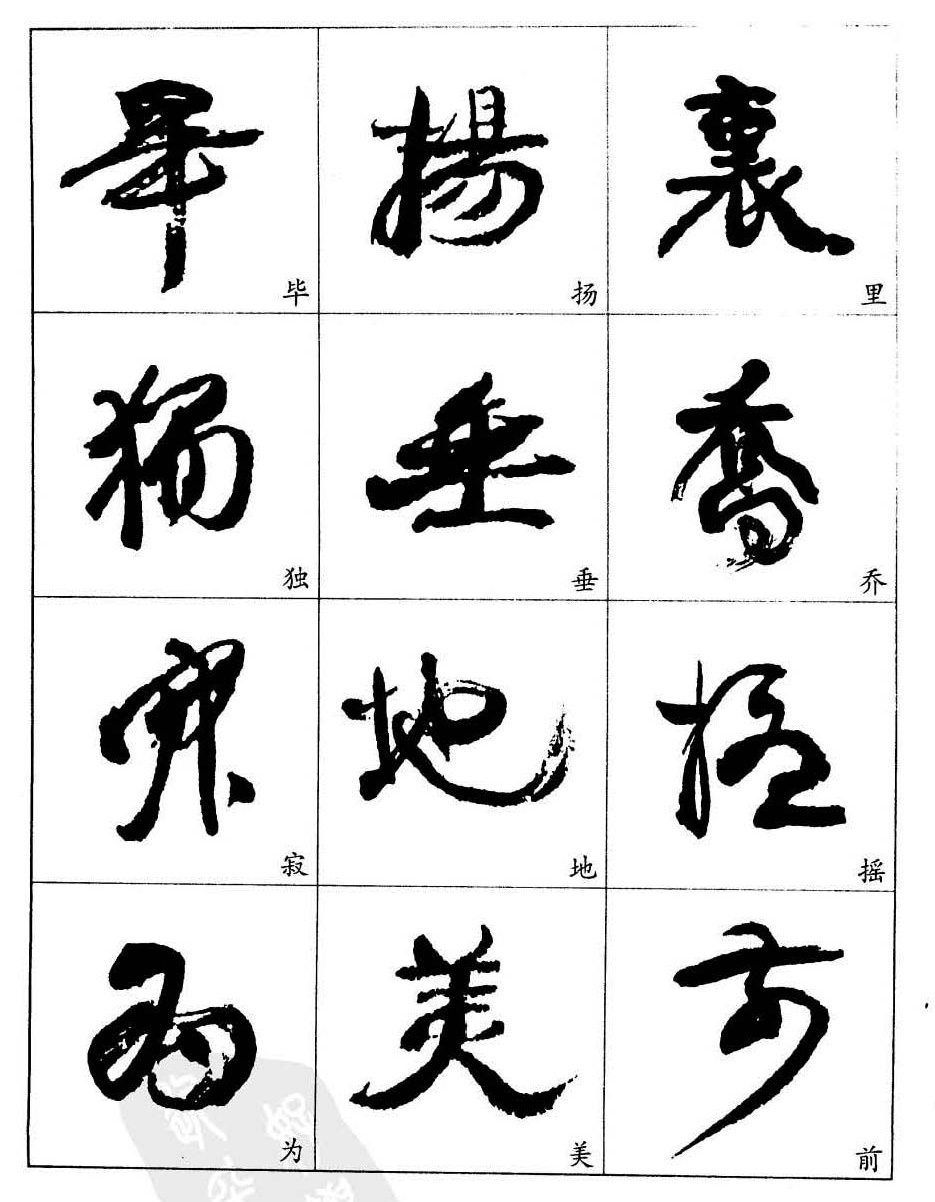 畢 揚 裏
毕 扬 里
獨 垂 喬
独 垂 乔
寂 地 摇
寂 地 摇
為 美 前
为 美 前